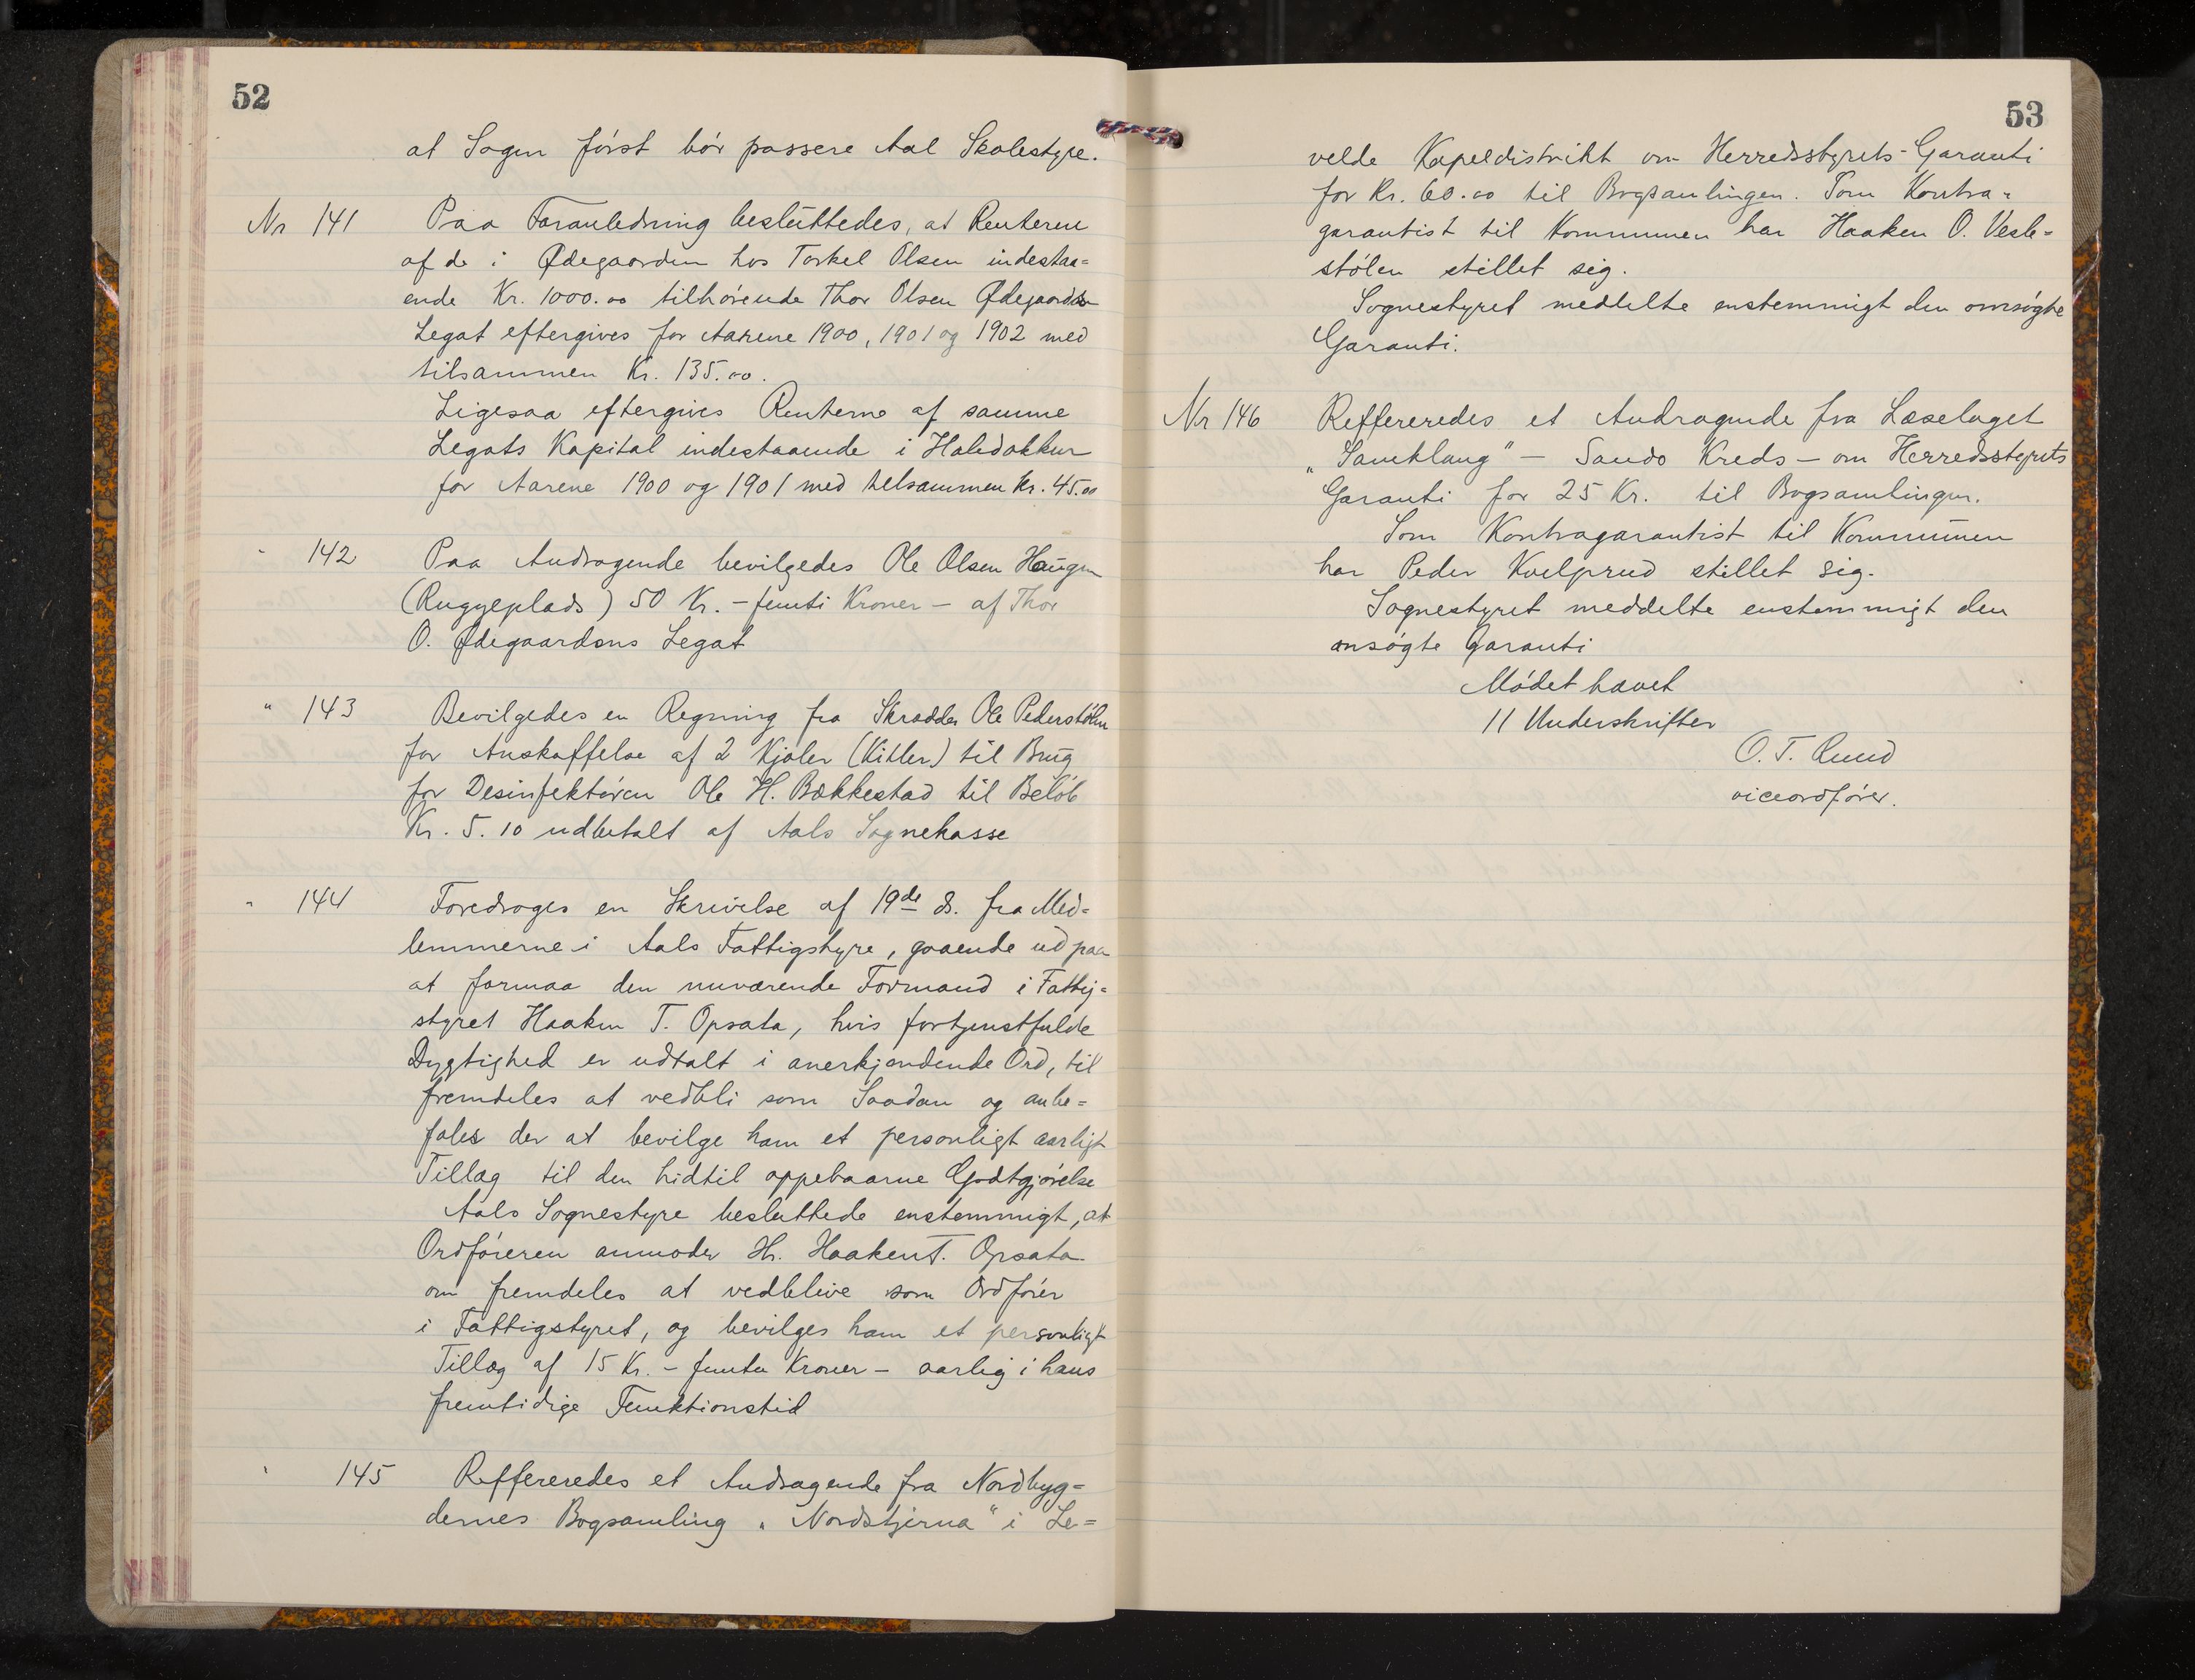 52
at Sagen först bör passere Aal Skolestyre.
Nr 141 Paa Foranledning besluttedes, at Renterne
af de i Ødegaarden hos Torkel Olsen indestaa=
ende Kr. 1000.00 tilhörende Thor Olsen Ødegaards
Legat eftergives for Aarene 1900, 1901 og 1902 med
tilsammen Kr. 135.00.
Ligesaa eftergives Renterne af samme
Legats Kapital indestaaende i Haledokken
for Aarene 1900 og 1901 med tilsammen Kr. 45.00
" 142 Paa Andragende bevilgedes Ole Olsen Haugen
(Ruggeplads) 50 Kr. – femti Kroner – af Thor
O. Ødegaardens Legat
" 143 Bevilgedes en Regning fra Skrædder Ole Pederstölen
for Anskaffelse af 2 Kjoler (Kitler) til Brug
for Desinfektören Ole H. Bækkestad til Belöb
Kr. 5.10 udbetalt af Aals Sognekasse
" 144 Foredroges en Skrivelse af 19de ds. fra Med=
lemmerne i Aals Fattigstyre, gaaende ud paa
at formaa den nuværende Formand i Fattig=
styret Haaken T. Opsata, hvis fortjenstfulde
Dygtighed er udtalt i anerkjendende Ord, til
fremdeles at vedbli som Saadan og anbe=
fales der at bevilge ham et personligt aarligt
Tillæg til den hidtil oppebaarne Godtgjörelse
Aals Sognestyre besluttede enstemmigt, at
Ordföreren anmoder Hr. Haaken T. Opsata
om fremdeles at vedblive som Ordförer
i Fattigstyret, og bevilges ham et personligt
Tillæg af 15 Kr. – femten Kroner – aarlig i hans
fremtidige Funktionstid
" 145 Reffereredes et Andragende fra Nordbyg=
dernes Bogsamling „Nordstjerna" i Le=
53
velde Kapeldistrikt om Herredsstyrets Garanti
for Kr. 60.00 til Bogsamlingen. Som Kontra=
garantist til Kommunen har Haaken O. Vesle=
stölen stillet sig.
Sognestyret meddelte enstemmigt den omsögte
Garanti.
Nr 146 Reffereredes et Andragende fra Læselaget
„Samklang" – Sando Kreds – om Herredsstyrets
Garanti for 25 Kr. til Bogsamlingen.
Som Kontragarantist til Kommunen
har Peder Kvelprud stillet sig.
Sognestyret meddelte enstemmigt den
ansögte Garanti
Mödet hævet
11 Underskrifter
O. T. Ruud
viceordförer.